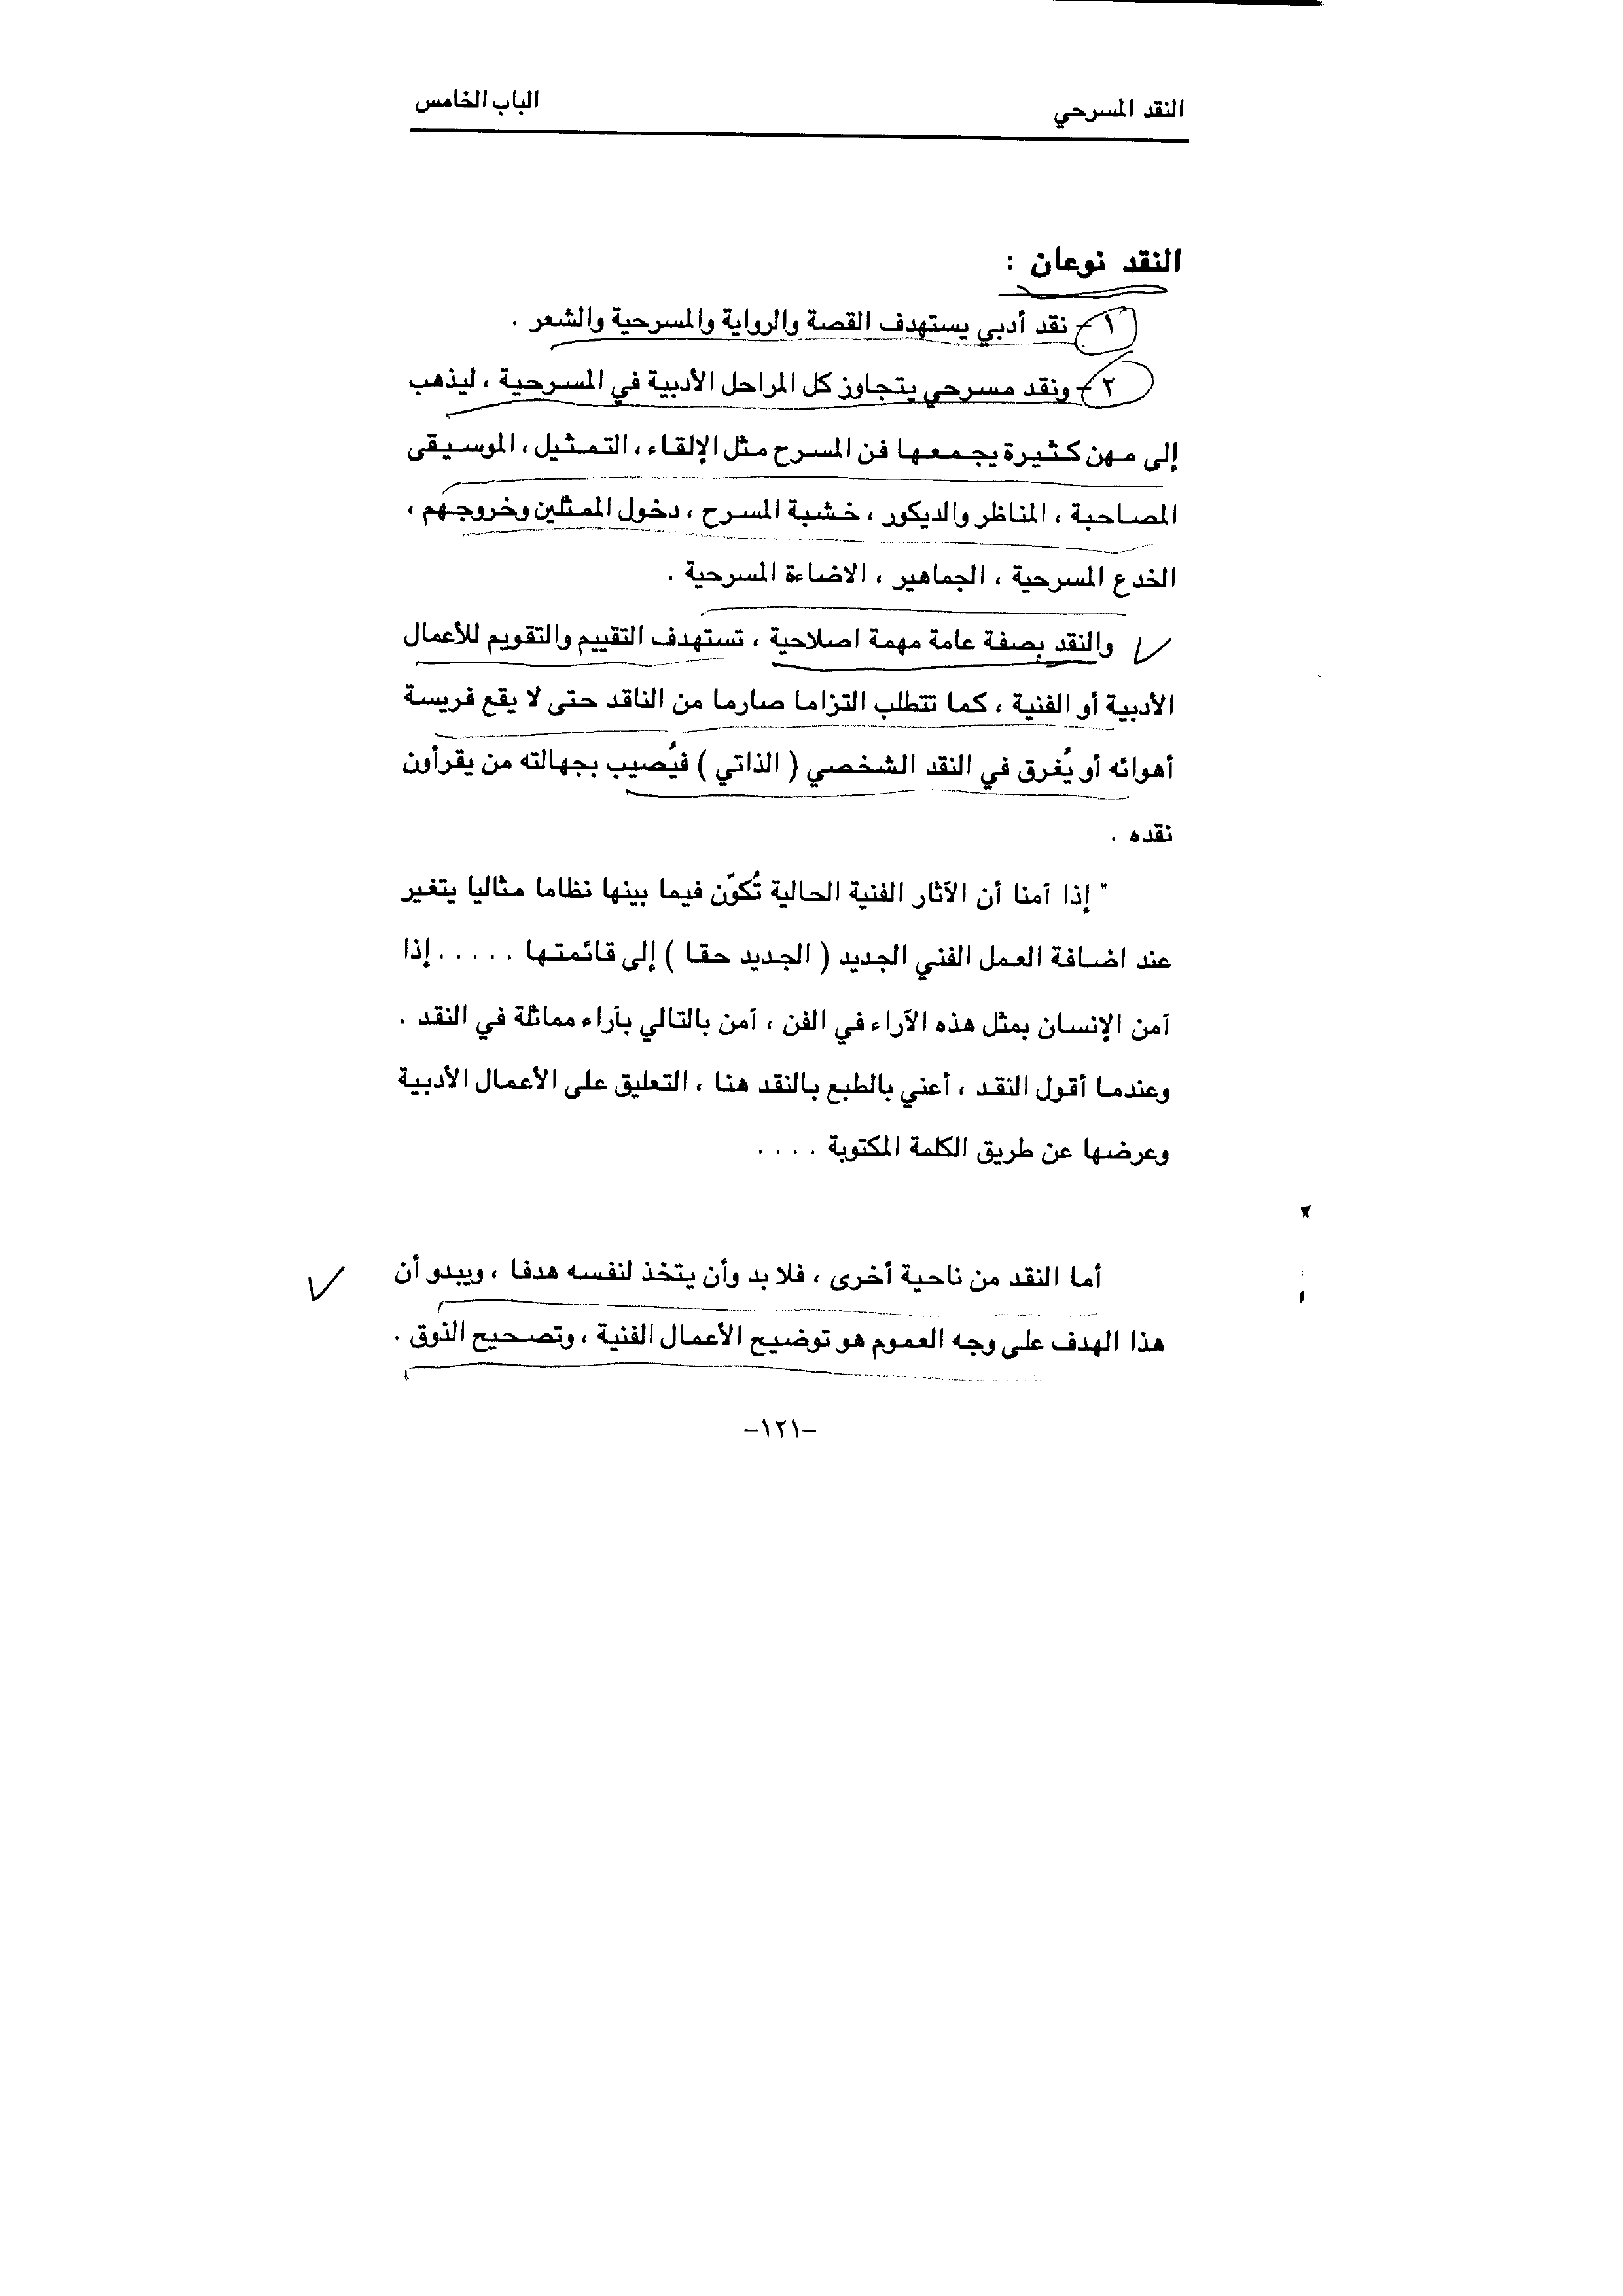 النقد المسرحي الباب الخامس
النقد نوعان :
١- نقد أدبي يستهدف القصة والرواية والمسرحية والشعر .
٢- ونقد مسرحي يتجاوز كل المراحل الأدبية في المسرحية ، ليذهب
إلى مهن كثيرة يجمعها فن المسرح مثل الإلقاء ، التمثيل ، الموسيقى
المصاحبة ، المناظر والديكور ، خشبة المسرح ، دخول الممثلين وخروجهم ،
الخدع المسرحية ، الجماهير ، الاضاءة المسرحية .
والنقد بصفة عامة مهمة اصلاحية ، تستهدف التقييم والتقويم للأعمال
الأدبية أو الفنية ، كما تتطلب التزاما صارما من الناقد حتى لا يقع فريسة
أهوائه أو يُغرق في النقد الشخصي ( الذاتي ) فيُصيب بجهالته من يقرأون
نقده .
" إذا آمنا أن الآثار الفنية الحالية تُكوّن فيما بينها نظاما مثاليا يتغير
عند اضافة العمل الفني الجديد ( الجديد حقا ) إلى قائمتها . . . . . إذا
آمن الإنسان بمثل هذه الآراء في الفن ، آمن بالتالي بآراء مماثلة في النقد .
وعندما أقول النقد ، أعني بالطبع بالنقد هنا ، التعليق على الأعمال الأدبية
وعرضها عن طريق الكلمة المكتوبة . . . .
أما النقد من ناحية أخرى ، فلا بد وأن يتخذ لنفسه هدفا ، ويبدو أن
هذا الهدف على وجه العموم هو توضيح الأعمال الفنية ، وتصحيح الذوق .
-١٢١-